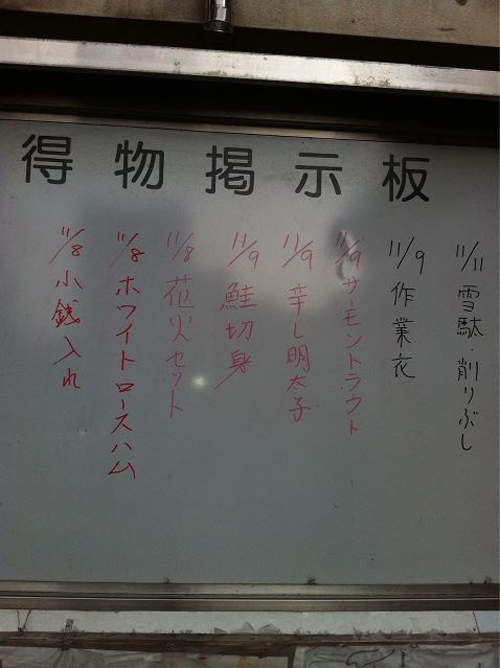 得物掲示板
11/11 雪駄・削りぶし
11/9 作業衣
11/9 サーモントラウト
11/9 辛し明太子
11/9 鮭切身
11/8 花火セット
11/8 ホワイトロースハム
11/8 小銭入れ